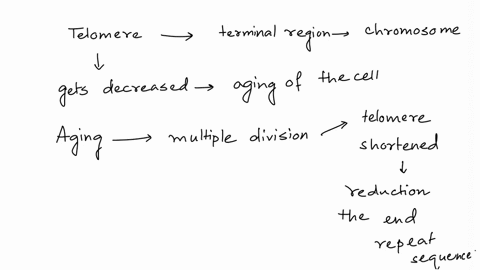 Telomere → terminal region → chromosome
↓
gets decreased → aging of the cell
Aging → multiple division → telomere
shortened
↓
reduction
the end
repeat
sequence